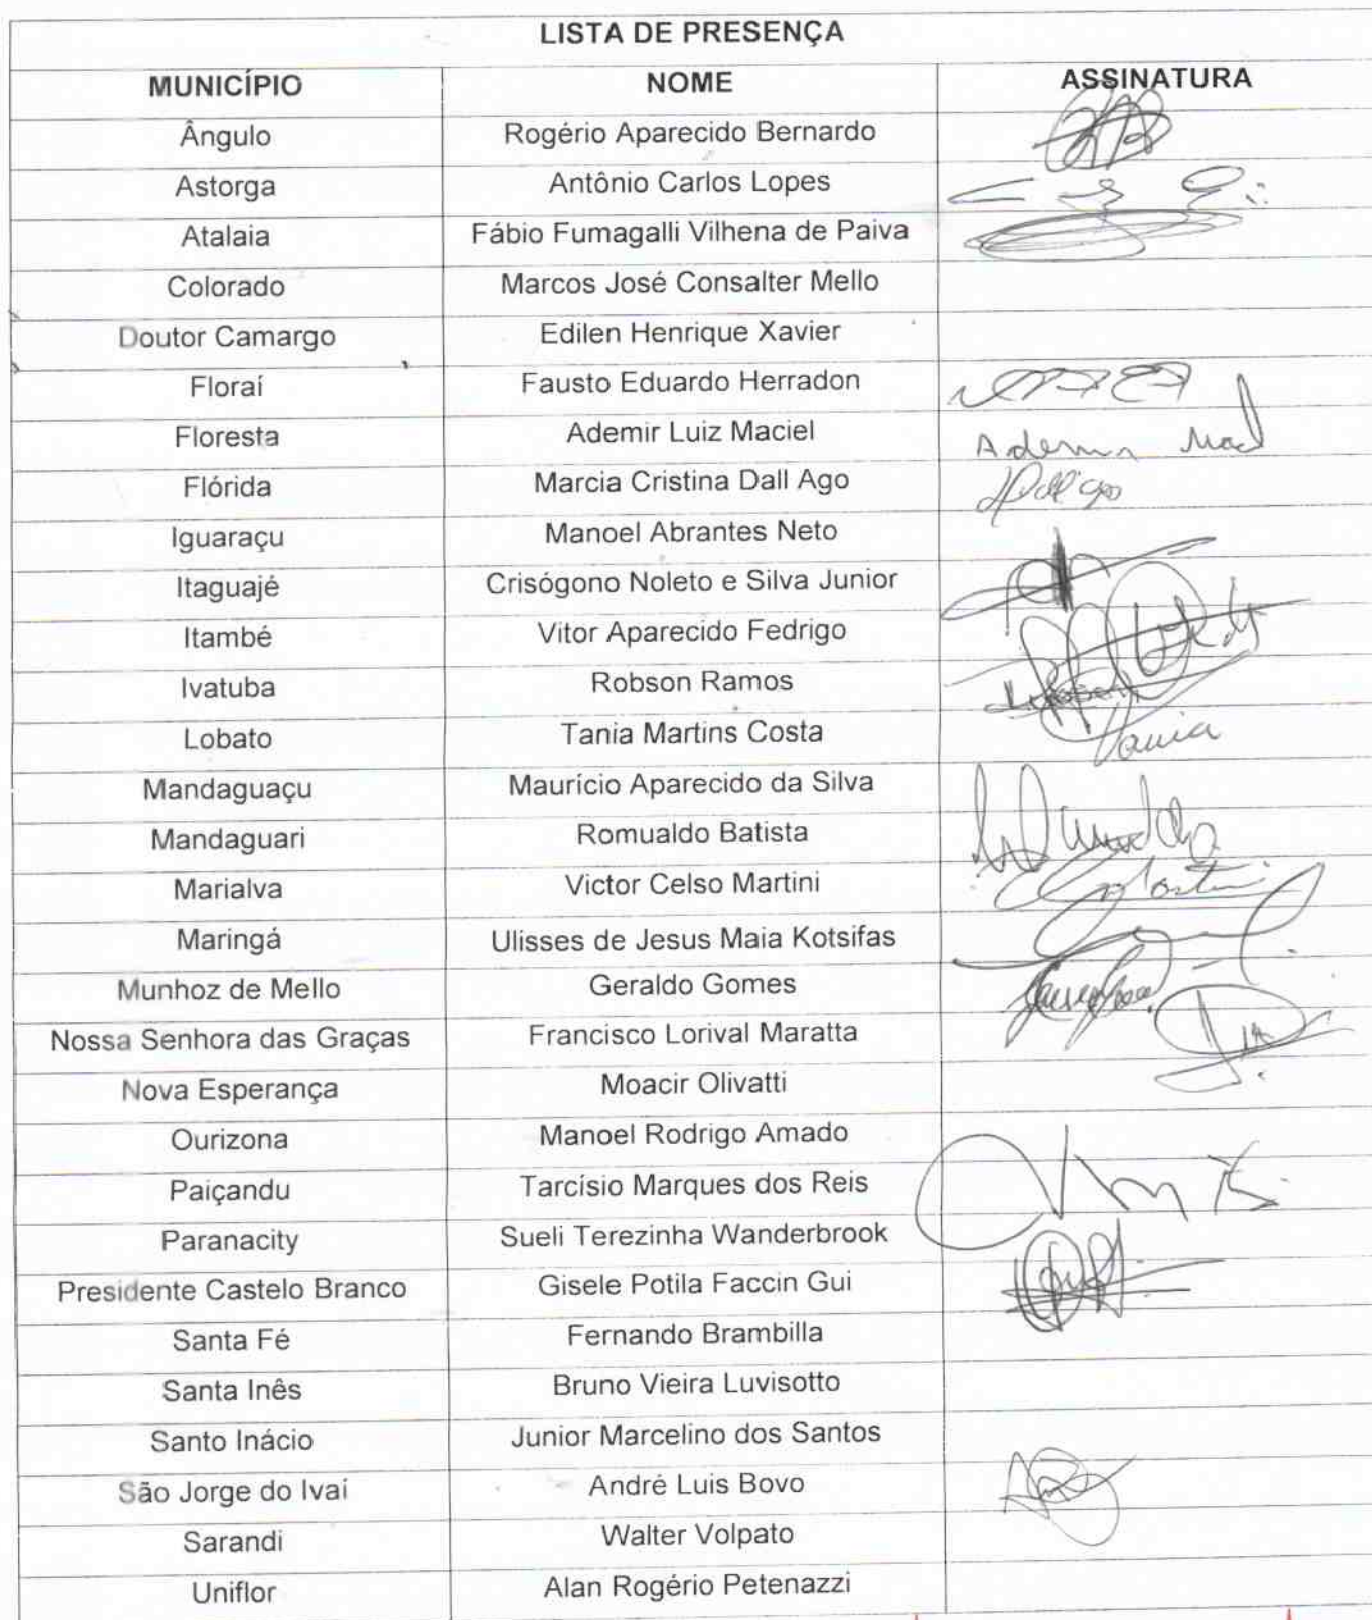 LISTA DE PRESENÇA
MUNICÍPIO NOME ASSINATURA
Ângulo Rogério Aparecido Bernardo
Astorga Antônio Carlos Lopes
Atalaia Fábio Fumagalli Vilhena de Paiva
Colorado Marcos José Consalter Mello
Doutor Camargo Edilen Henrique Xavier
Floraí Fausto Eduardo Herradon
Floresta Ademir Luiz Maciel
Flórida Marcia Cristina Dall Ago
Iguaraçu Manoel Abrantes Neto
Itaguajé Crisógono Noleto e Silva Junior
Itambé Vitor Aparecido Fedrigo
Ivatuba Robson Ramos
Lobato Tania Martins Costa Tania
Mandaguaçu Maurício Aparecido da Silva
Mandaguari Romualdo Batista
Marialva Victor Celso Martini
Maringá Ulisses de Jesus Maia Kotsifas
Munhoz de Mello Geraldo Gomes
Nossa Senhora das Graças Francisco Lorival Maratta
Nova Esperança Moacir Olivatti
Ourizona Manoel Rodrigo Amado
Paiçandu Tarcísio Marques dos Reis
Paranacity Sueli Terezinha Wanderbrook
Presidente Castelo Branco Gisele Potila Faccin Gui
Santa Fé Fernando Brambilla
Santa Inês Bruno Vieira Luvisotto
Santo Inácio Junior Marcelino dos Santos
São Jorge do Ivaí André Luis Bovo
Sarandi Walter Volpato
Uniflor Alan Rogério Petenazzi